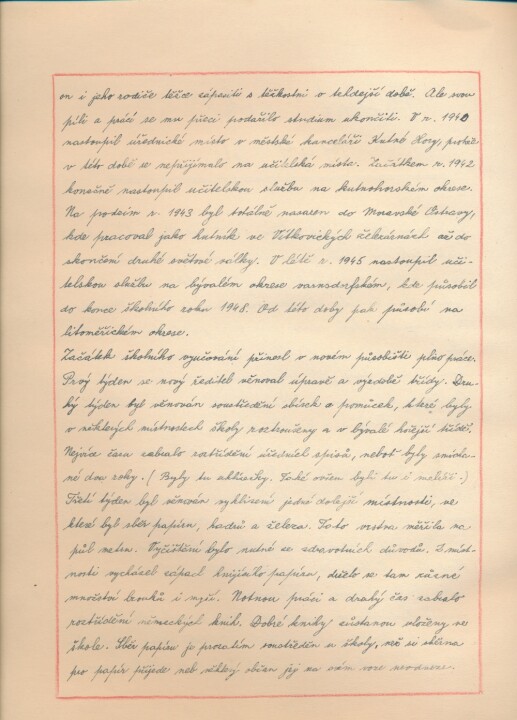 on i jeho rodiče těžce zápasili s těžkostmi v tehdejší době. Ale svou
pílí a prací se mu přeci podařilo studium ukončiti. V r. 1940
nastoupil úřednické místo v městské kanceláři Kutné Hory, protože
v této době se nepřijímalo na učitelská místa. Začátkem r. 1942
konečně nastoupil učitelskou službu na kutnohorském okrese.
Na podzim r. 1943 byl totálně nasazen do Moravské Ostravy,
kde pracoval jako hutník ve Vítkovických železárnách až do
skončení druhé světové války. V létě r. 1945 nastoupil uči-
telskou službu na bývalém okrese varnsdorfském, kde působil
do konce školního roku 1948. Od této doby pak působí na
litoměřickém okrese.
Začátek školního vyučování přinesl v novém působišti plno práce.
Prvý týden se nový ředitel věnoval úpravě a výzdobě třídy. Dru-
hý týden byl věnován soustředění sbírek a pomůcek, které byly
v některých místnostech školy roztroušeny a v bývalé hořejší třídě.
Nejvíce času zabralo roztřídění úředních spisů, neboť byly smícha-
né dva roky. (Byly tu oblázky. Také ovšem byli tu i .)
Třetí týden byl věnován vyklizení jedné dolejší místnosti, ve
které byl sběr papíru, hadrů a železa. Tato vrstva měřila na
půl metru. Vyčištění bylo nutné ze zdravotních důvodů. Z míst-
nosti vycházel zápach hnijícího papíru, drželo se tam různé
množství brouků i myší. Notnou práci a drahý čas zabralo
roztřídění německých knih. Dobré knihy zůstanou uloženy ve
škole. Sběr papíru je prozatím soustředěn u školy, než si sběrna
pro papír přijede neb některý občan jej na svém voze neodveze.